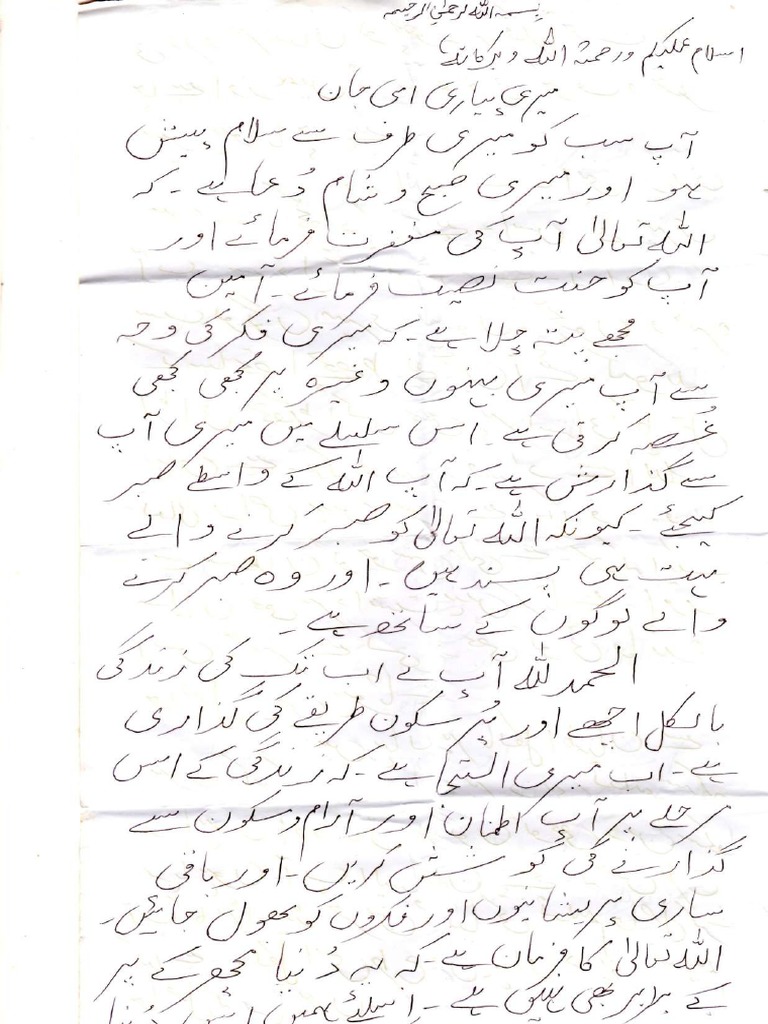 بسم اللہ الرحمٰن الرحیم
اسلام علیکم ورحمتہ اللہ وبرکاتہ
میری پیاری امی جان
آپ سب کو میری طرف سے سلام پیش
ہو اور میری صبح و شام دُعا ہے۔ کہ
اللہ تعالیٰ آپ کی مغفرت فرمائے اور
آپ کو جنت نصیب فرمائے۔ آمین
مجھے پتہ چلا ہے۔ کہ میری فکر کی وجہ
سے آپ میری بہنوں وغیرہ پر کبھی کبھی
غُصہ کرتی ہے۔ اس سلسلے میں میری آپ
سے گذارش ہے۔ کہ آپ اللہ کے واسطے صبر
کیجئے۔ کیونکہ اللہ تعالیٰ کو صبر کرنے والے
بہت ہی پسند ہیں۔ اور وہ صبر کرنے
والے لوگوں کے ساتھ ہے۔
الحمد للہ آپ نے اب تک کی زندگی
بالکل اچھے اور پُر سکون طریقے کی گذاری
ہے۔ اب میری التجا ہے۔ کہ زندگی کے اس
مرحلے پر آپ اطمنان اور آرام و سکون سے
گذارنے کی کوشش کریں۔ اور باقی
ساری پریشانیوں اور فکروں کو بھول جائیں۔
اللہ تعالیٰ کا فرمان ہے۔ کہ یہ دُنیا مچھر کے پر
کے برابر بھی نہیں ہے۔ اسلئے ہمیں